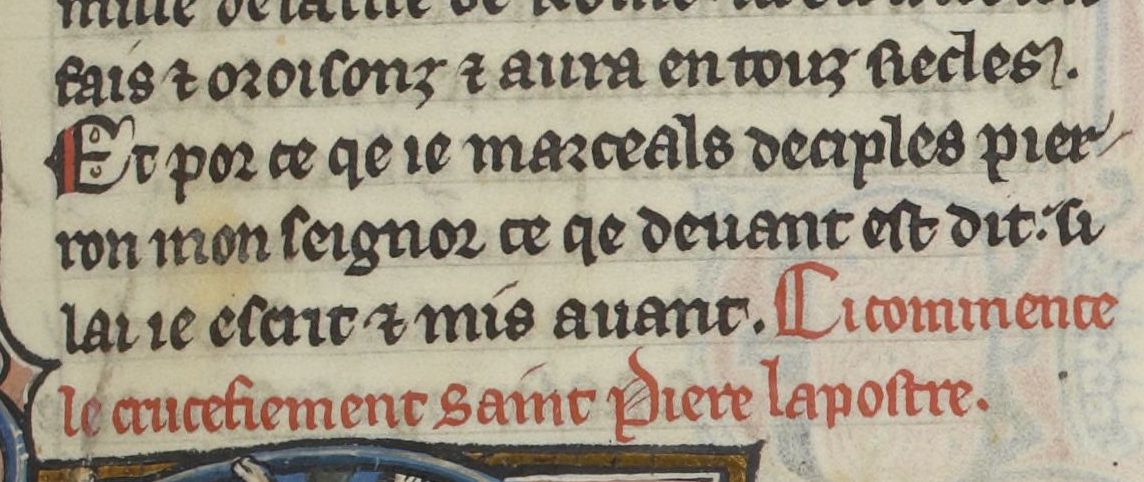 fais ⁊ oroisonz ⁊ aura en touz siecles.
Et por ce qe ie marceals deciples pier-
ron mon seignor ce qe deuant est dit. si
lai ie escrit ⁊ mis auant. Ci commence
le crucefiement saint Piere lapostre.